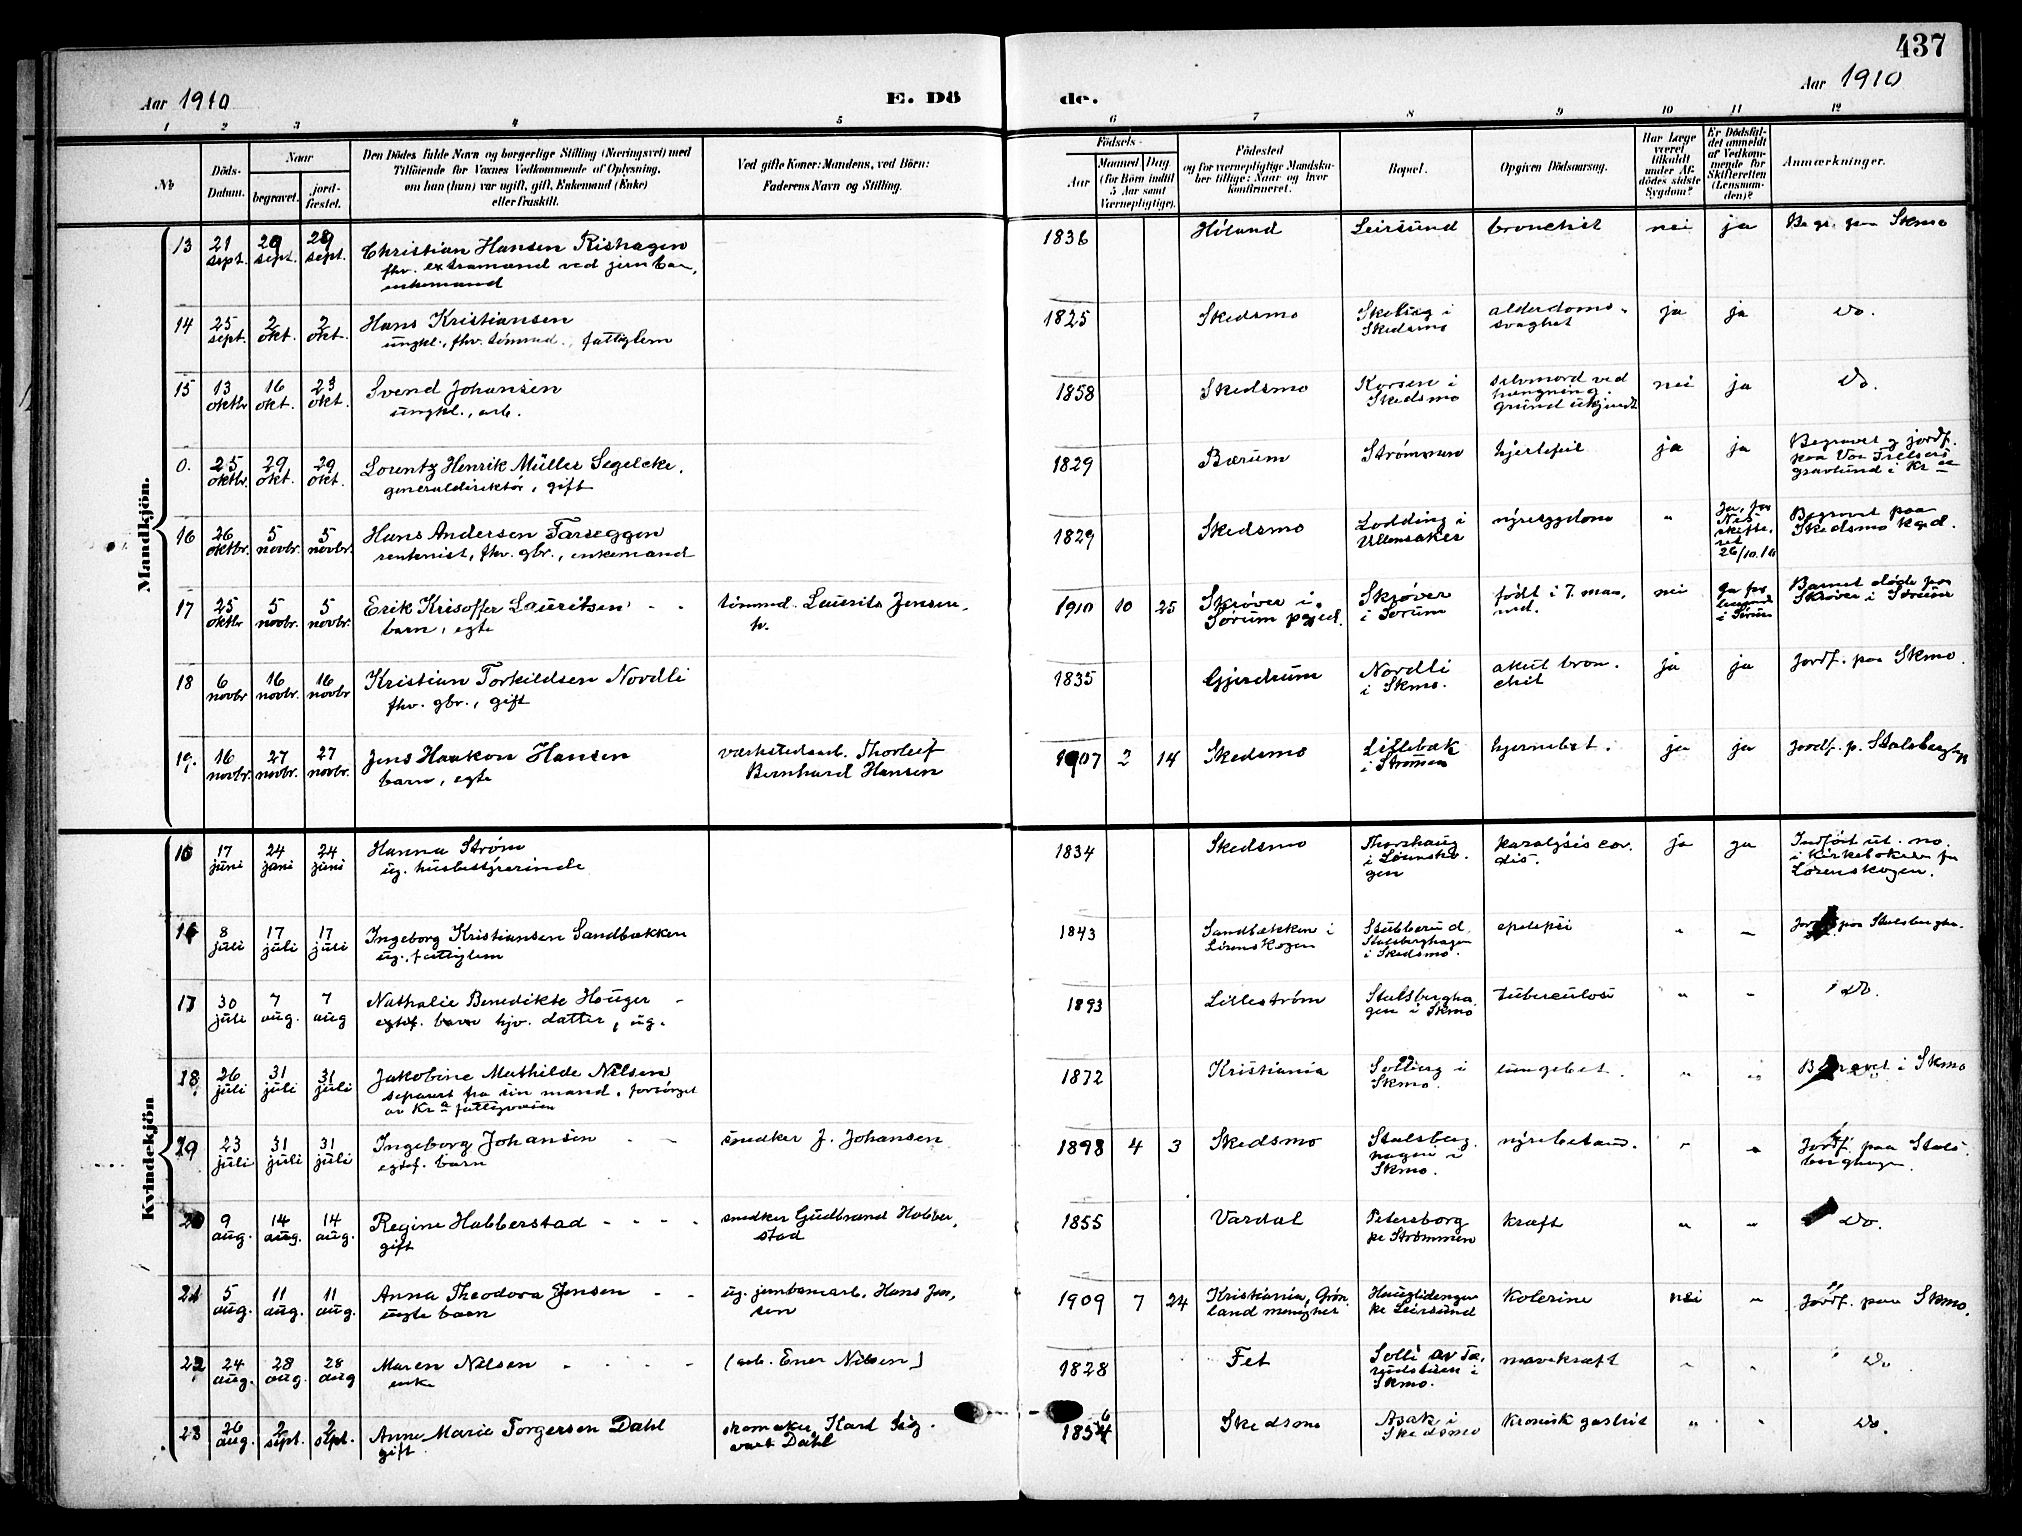 437
Aar 1910
E. Dö de.
Aar 1910
1 2 3 4 5 6 7 8 9 10 11 12
No
Döds-Datum.
Naar
begravet.
jord-fæstet.
Den Dödes fulde Navn og borgerlige Stilling (Næringsvei) med
Tilföiende for Voxnes Vedkommende af Oplysning,
om han (hun) var ugift, gift, Enkemand (Enke)
eller fraskilt.
Ved gifte Koner: Mandens, ved Börn:
Faderens Navn og Stilling.
Födsels-
Aar
Maaned Dag
(for Börn indtil
5 Aar samt
Værnepligtige).
Födested
og for værnepligtige Mandska-
ber tillige: Naar og hvor
konfirmeret.
Bopæl.
Opgiven Dödsaarsag.
Har Læge
været
tilkaldt
under Af-
dödes sidste
Sygdom?
Er Dödsfal-
det anmeldt
af Vedkom-
mende for
Skifteretten
(Lensman-
den)?
Anmærkninger.
Mandkjön.
13 21 sept. 29 sept. 29 sept. Christian Hansen Rishagen 1836 Høland Leirsund bronchit nei ja Begr. paa Skmo
fhv. extramand ved jernban,
enkemand
14 25 sept. 2 okt. 2 okt. Hans Kristiansen 1825 Skedsmo i Skedsmo alderdoms-svaghet ja ja Do.
ungkl., fhv. tømmd., fattiglem
15 13 oktbr 16 okt. 23 okt. Svend Johansen 1858 Skedsmo Korsen i Skedsmo selvmord ved hængning. grund ukjendt nei ja Do.
ungkl., arb.
0. 25 oktbr. 29 okt. 29 okt. Lorentz Henrik Müller Segelcke, 1829 Bærum Strømmen hjertefeil ja ja Begravet og jordf. paa Vor Frelsers gravlund i Kr a
generaldirektør, gift
16 26 oktbr. 5 novbr. 5 novbr. Hans Andersen Farseggen 1829 Skedsmo Lodding i Ullensaker nyresygdom " Ja, for Nes skifte-ret 26/10.10 Begravet paa Skedsmo kgd.
rentenist, fhv. gbr., enkemand
17 25 oktbr 5 novbr. 5 novbr. Erik Krisoffer Lauritsen - - tømmd. Laurits Jensen, 1910 10 25 Skrøver i Sørum pgjd. Skrøver i Sørum født i 7. maa, nei Barnet døde paa Skrøver i Sørum
barn, egte
18 6 novbr 16 novbr. 16 novbr Kristian Torkildsen Nordli 1835 Gjerdrum Nordli i Skmo. akut bron-chit ja ja Jordf. paa Skmo.
fhv. gbr., gift
19. 16 novbr. 27 novbr. 27 novbr. Jens Haakon Hansen værkstedsarb. Thorleif Bernhard Hansen 1907 2 14 Skedsmo Lillebæk i Strømmen hjernebet. ja ja Jordf. p. Stalsberghgn
barn, egte
Kvindekjön
15 17 juni 24 juni 24 juni Hanna Strøm 1834 Skedsmo Thorshaug i Lørensko-gen paralysis cor-dis. ja ja Indført ut. no. i kirkeboken for Lørenskogen.
ug. husbestyrerinde
16 8 juli 17 juli 17 juli Ingeborg Kristiansen Sandbækken 1843 Sandbækken i Lørenskogen Stubberud, Stalsberghagen i Skedsmo. epelepsi " " Jordf. paa Stalsbergha.
ug., fattiglem
17 30 juli 7 aug. 7 aug Nathalie Benedikte Houger - 1893 Lillestrøm Stalsbergha-gen i Skmo tuberculosi " " Do.
egtef. barn hjv. datter, ug.
18 26 juli 31 juli 31 juli Jakobine Mathilde Nilsen 1872 Kristiania Solberg i Skmo. lungebet. " " Begravet i Skmo
separert fra sin mand, forsørget
av Kr a fattigvæsen
19 23 juli 31 juli 31 juli Ingeborg Johansen - - snedker J. Johansen 1898 4 3 Skedsmo Stalsberg-hagen i Skmo. nyrebetænd. " " Jordf. paa Stals-berghagen
egtef. barn
20 9 aug. 14 aug. 14 aug. Regine Habberstad - - - - snedker Gudbrand Habber-stad 1855 Vardal Petersborg pr Strømmen kræft " " Do.
gift
21 5 aug. 11 aug. 11 aug. Anna Theodora Jensen - - ug. jernbanearb. Hans Jen-sen 1909 7 24 Kristiania, Grøn-land menighet Hauglidengen pr Leirsund kolerine nei " Jordf. paa Skmo.
uegte barn
22 24 aug. 28 aug. 28 aug Maren Nilsen - - - - (arb. Ener Nilsen) 1828 Fet Solli i Skmo. mavekræft " " Do
enke
23 26 aug. 2 sept. 2 sept. Anne Marie Torgersen Dahl skomaker Karl Sig-vart Dahl 1854 6 Skedsmo Asak i Skedsmo kronisk gastrit " " Do.
gift